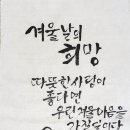 겨울날의
희망
따뜻한 사람이
좋다면
우린 겨울 마음을
가질 일이다